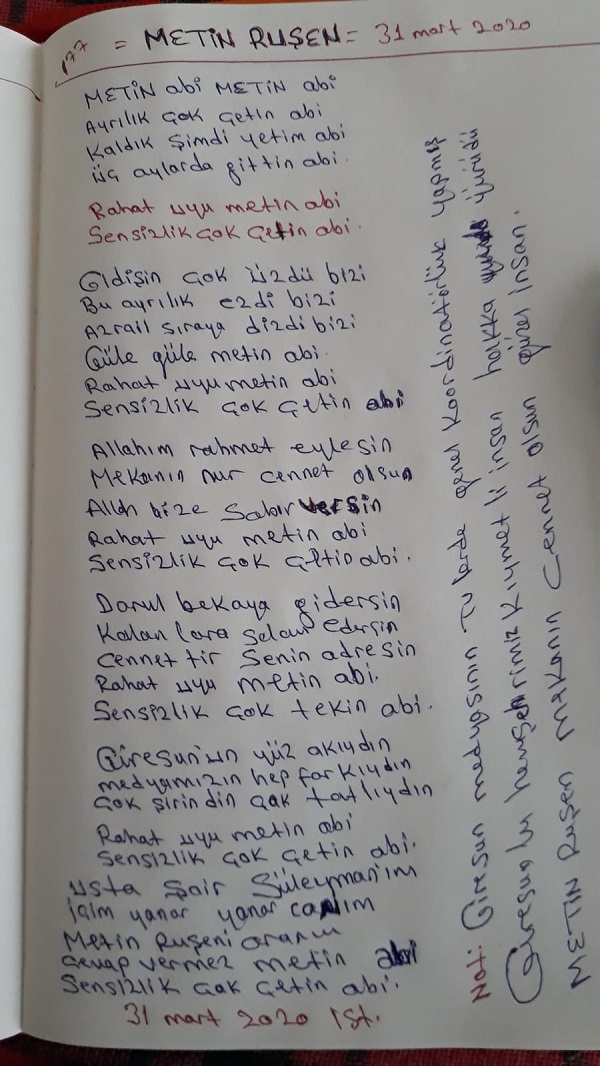 177 = METİN RUŞEN = 31 mart 2020
METİN abi METİN abi
Ayrılık çok çetin abi
Kaldık şimdi yetim abi
üç aylarda gittin abi.
Rahat uyu metin abi
Sensizlik çok çetin abi.
Gidişin çok üzdü bizi
Bu ayrılık ezdi bizi
Azrail sıraya dizdi bizi
Güle güle metin abi.
Rahat uyu metin abi
Sensizlik çok çetin abi
Allahım rahmet eylesin
Mekanın nur cennet olsun
Allah bize Sabır versin
Rahat uyu metin abi
Sensizlik çok çetin abi.
Darul bekaya gidersin
Kalanlara selam edersin
Cennettir senin adresin
Rahat uyu metin abi.
Sensizlik çok tekin abi.
Giresun'un yüz akıydın
medyamızın hep farkıydın
çok şirindin çok tatlıydın
Rahat uyu metin abi
Sensizlik çok çetin abi.
usta Şair Süleyman'ım
içim yanar yanar canım
Metin Ruşeni ararım
Cevap vermez metin abi
Sensizlik çok çetin abi.
31 mart 2020 ist.
Not: Giresun medyasının Tv lerde genel koordinatörlük yapmış
Giresunlu hemşehrimiz kıymetli insan halkka yürüdü
METİN Ruşen mekanın Cennet olsun güzel insan.